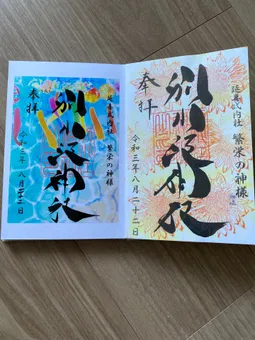 延喜式内社 繁栄の神様
奉拝
別小江神社
令和三年八月二十二日
延喜式内社 繁栄の神様
奉拝
別小江神社
令和三年 八月